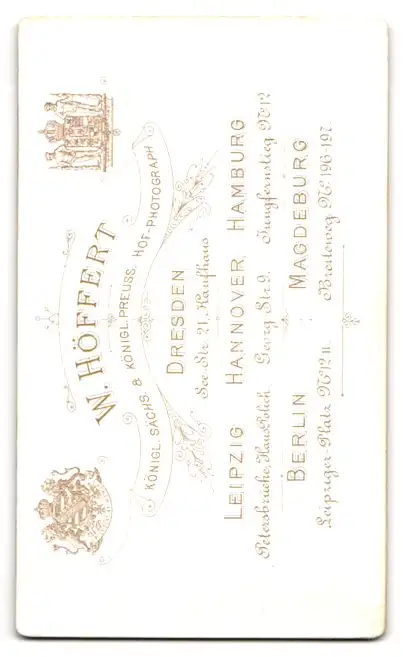 W. HÖFFERT
KÖNIGL. SÄCHS. & KÖNIGL. PREUSS. HOF-PHOTOGRAPH
DRESDEN
See-Str. 21, Kaufhaus
LEIPZIG HANNOVER HAMBURG
Petersbrücke, Haus Polich Georg Str. 9. Jungfernstieg No. 12
BERLIN MAGDEBURG
Leipziger-Platz No. 12 Breiteweg No. 196-197.